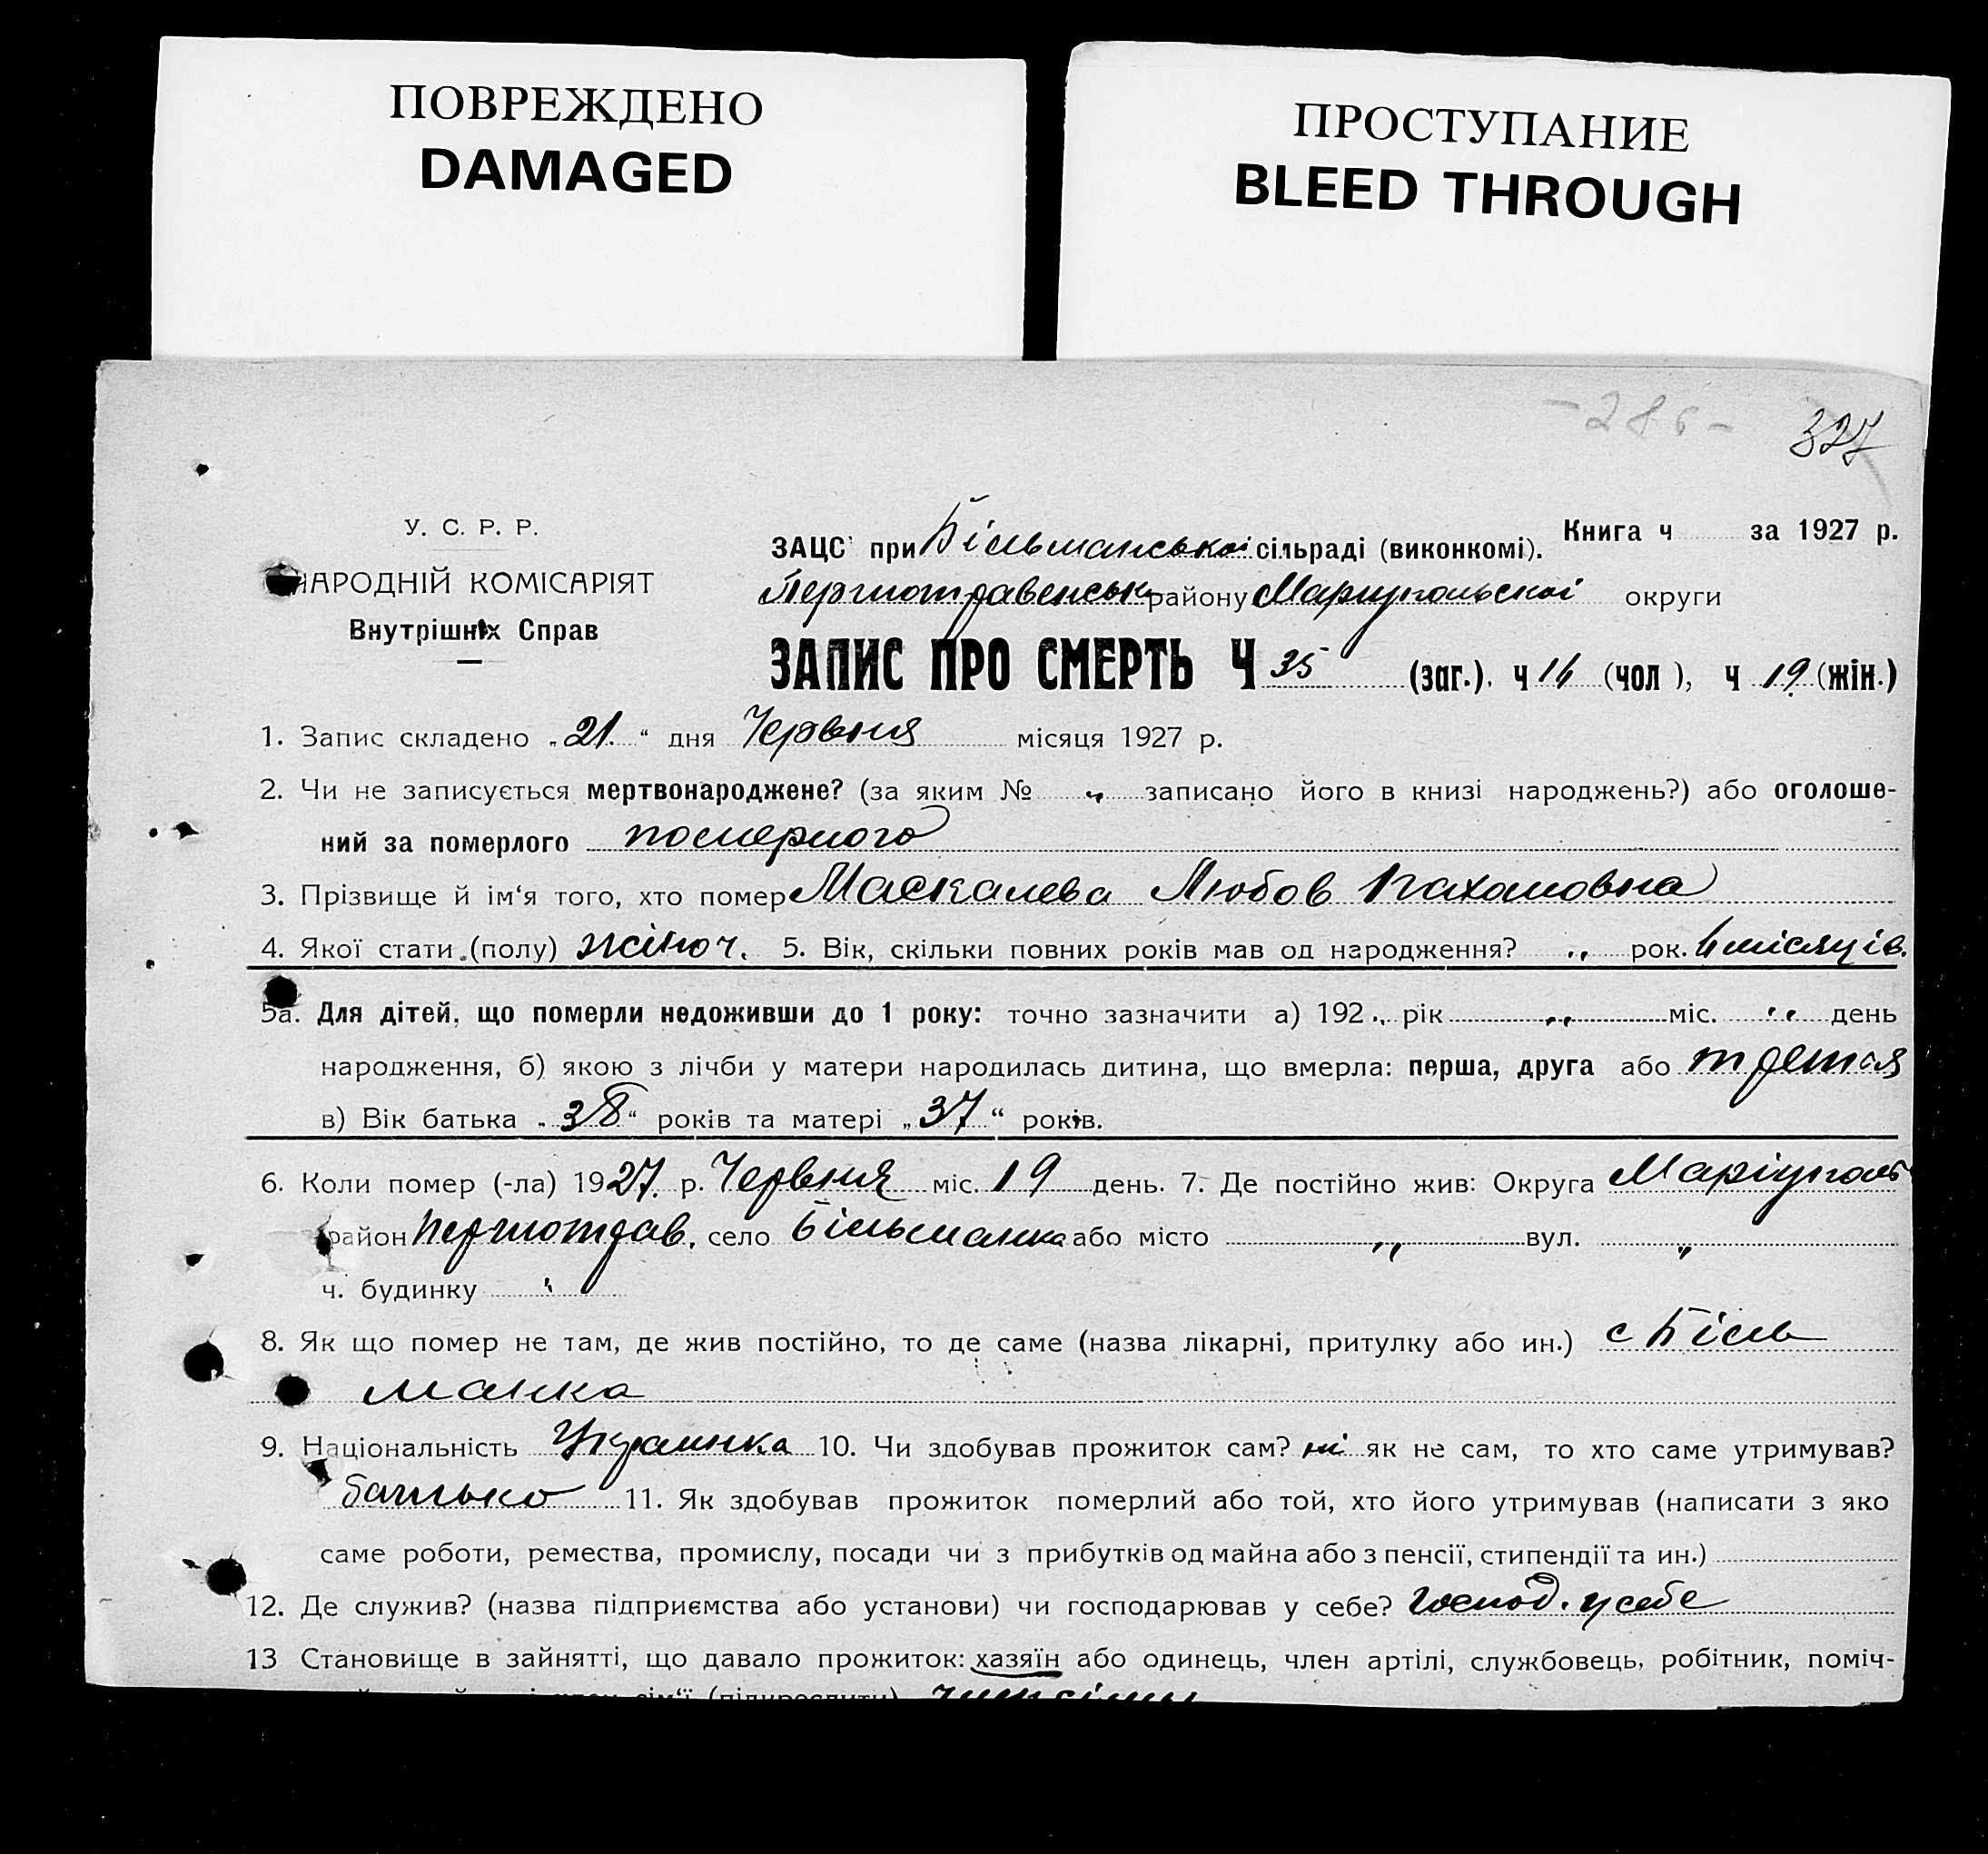 ПОВРЕЖДЕНО
DAMAGED
ПРОСТУПАНИЕ
BLEED THROUGH
-286-
327
У. С. Р. Р.
НАРОДНІЙ КОМІСАРІЯТ
Внутрішніх Справ
Книга ч за 1927 р.
ЗАЦС при Більманської сільраді (виконкомі).
Першотравенськ району Маріупольскої округи
ЗАПИС ПРО СМЕРТЬ Ч 35 (заг.). ч 16 (чол ), ч 19 (жін.)
1. Запис складено „21.“ дня Червня місяця 1927 р.
2. Чи не записується мертвонароджене? (за яким № „ записано його в книзі народжень?) або оголоше-
ний за померлого померлого
3. Прізвище й ім‘я того, хто помер Маскалева Любов Пахомовна
4. Якої стати (полу) жіноч. 5. Вік, скільки повних років мав од народження? „ рок. 6 місяців.
5а. Для дітей, що померли недоживши до 1 року: точно зазначити а) 192 „ рік „ міс. „ день
народження, б) якою з лічби у матери народилась дитина, що вмерла: перша, друга або третя
в) Вік батька „38“ років та матері „37“ років.
6. Коли помер (-ла) 1927. р. Червня міс. 19 день. 7. Де постійно жив: Округа Маріуполь
район Першотрав. село Більманка або місто „ вул. „
ч. будинку „
8. Як що помер не там, де жив постійно, то де саме (назва лікарні, притулку або ин.) с Біль
манка
9. Національність Украинка 10. Чи здобував прожиток сам? ні як не сам, то хто саме утримував?
батько 11. Як здобував прожиток померлий або той, хто його утримував (написати з яко
саме роботи, ремества, промислу, посади чи з прибутків од майна або з пенсії, стипендії та ин.)
12. Де служив? (назва підприємства або установи) чи господарював у себе? господ. у себе
13 Становище в зайнятті, що давало прожиток: хазяїн або одинець, член артілі, службовець, робітник, поміч-
сім‘ї (підкреслити)